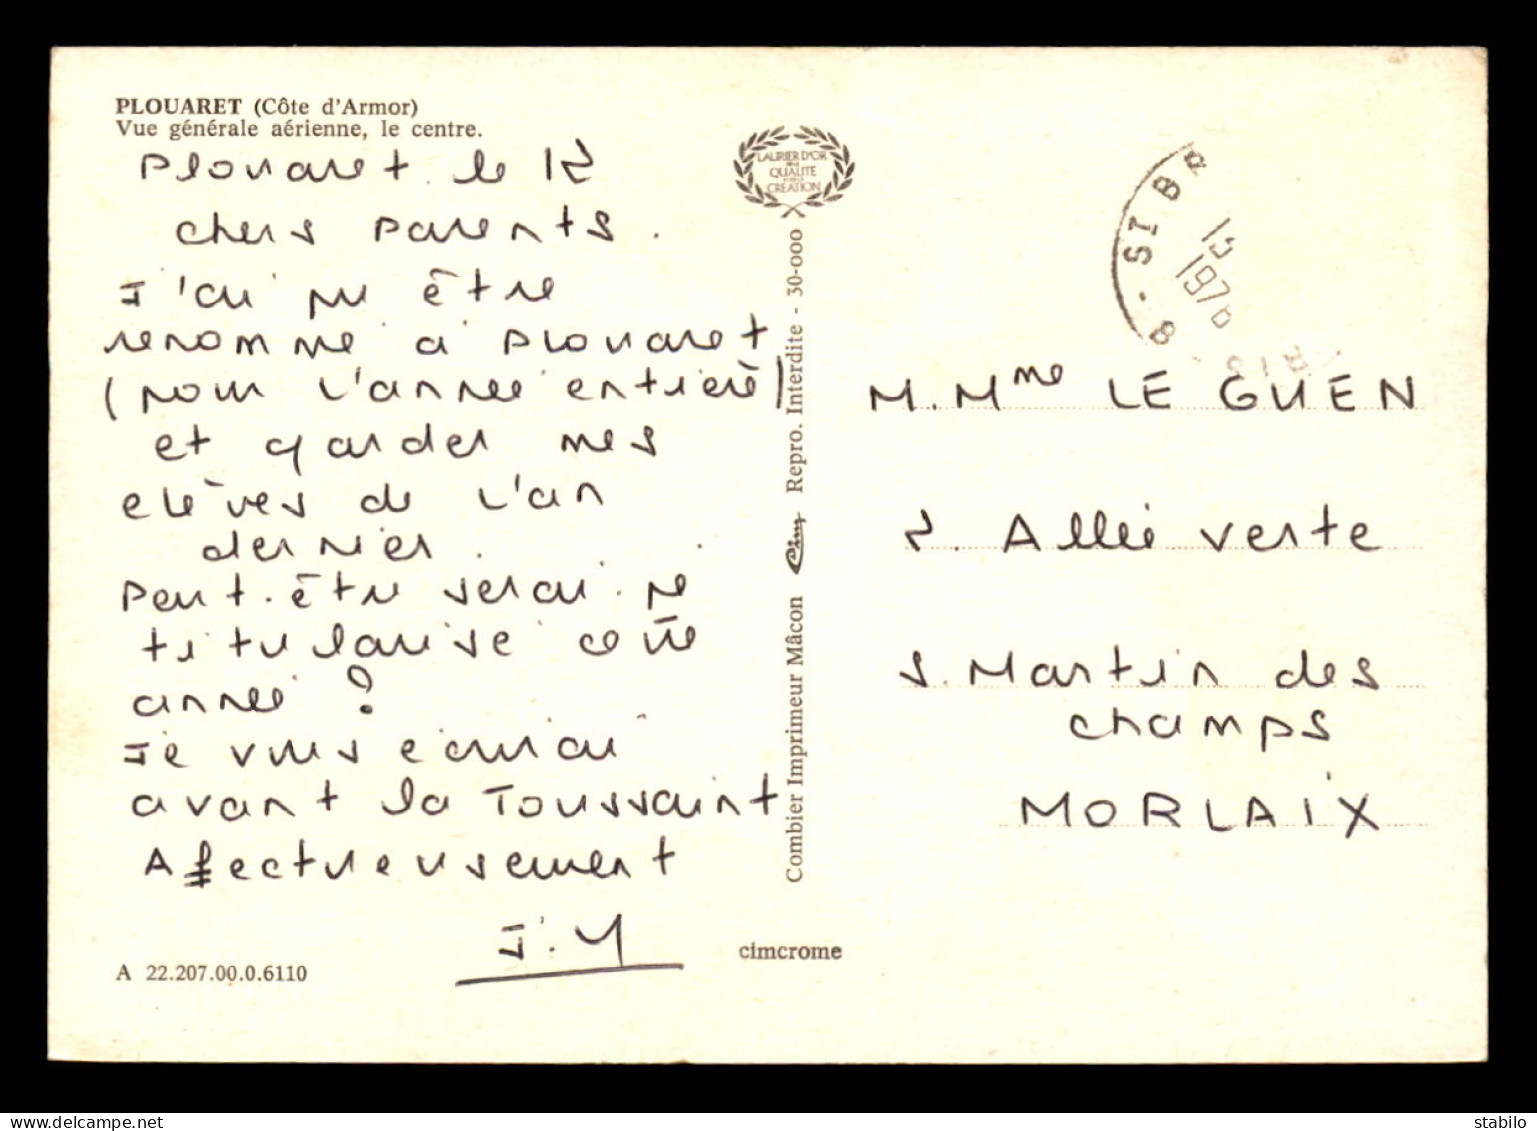 PLOUARET (Côte d'Armor)
Vue générale aérienne, le centre.
Plouaret. le 12
chers parents.
J'ai pu être
renommé à Plouaret
(pour l'année entière)
et garder mes
elèves de l'an
dernier.
Peut-être serai-je
titularisé cette
année ?
Je vous écrirai
avant la Toussaint
Affectueusement
J.Y
A 22.207.00.0.6110
LAURIER D'OR
QUALITE
CREATION
Combier Imprimeur Mâcon Cim Repro. Interdite - 30-000
cimcrome
ST BR
15
1976
M. Mme LE GUEN
2. Allée verte
S. Martin des
champs
MORLAIX
delcampe.net
stabilo